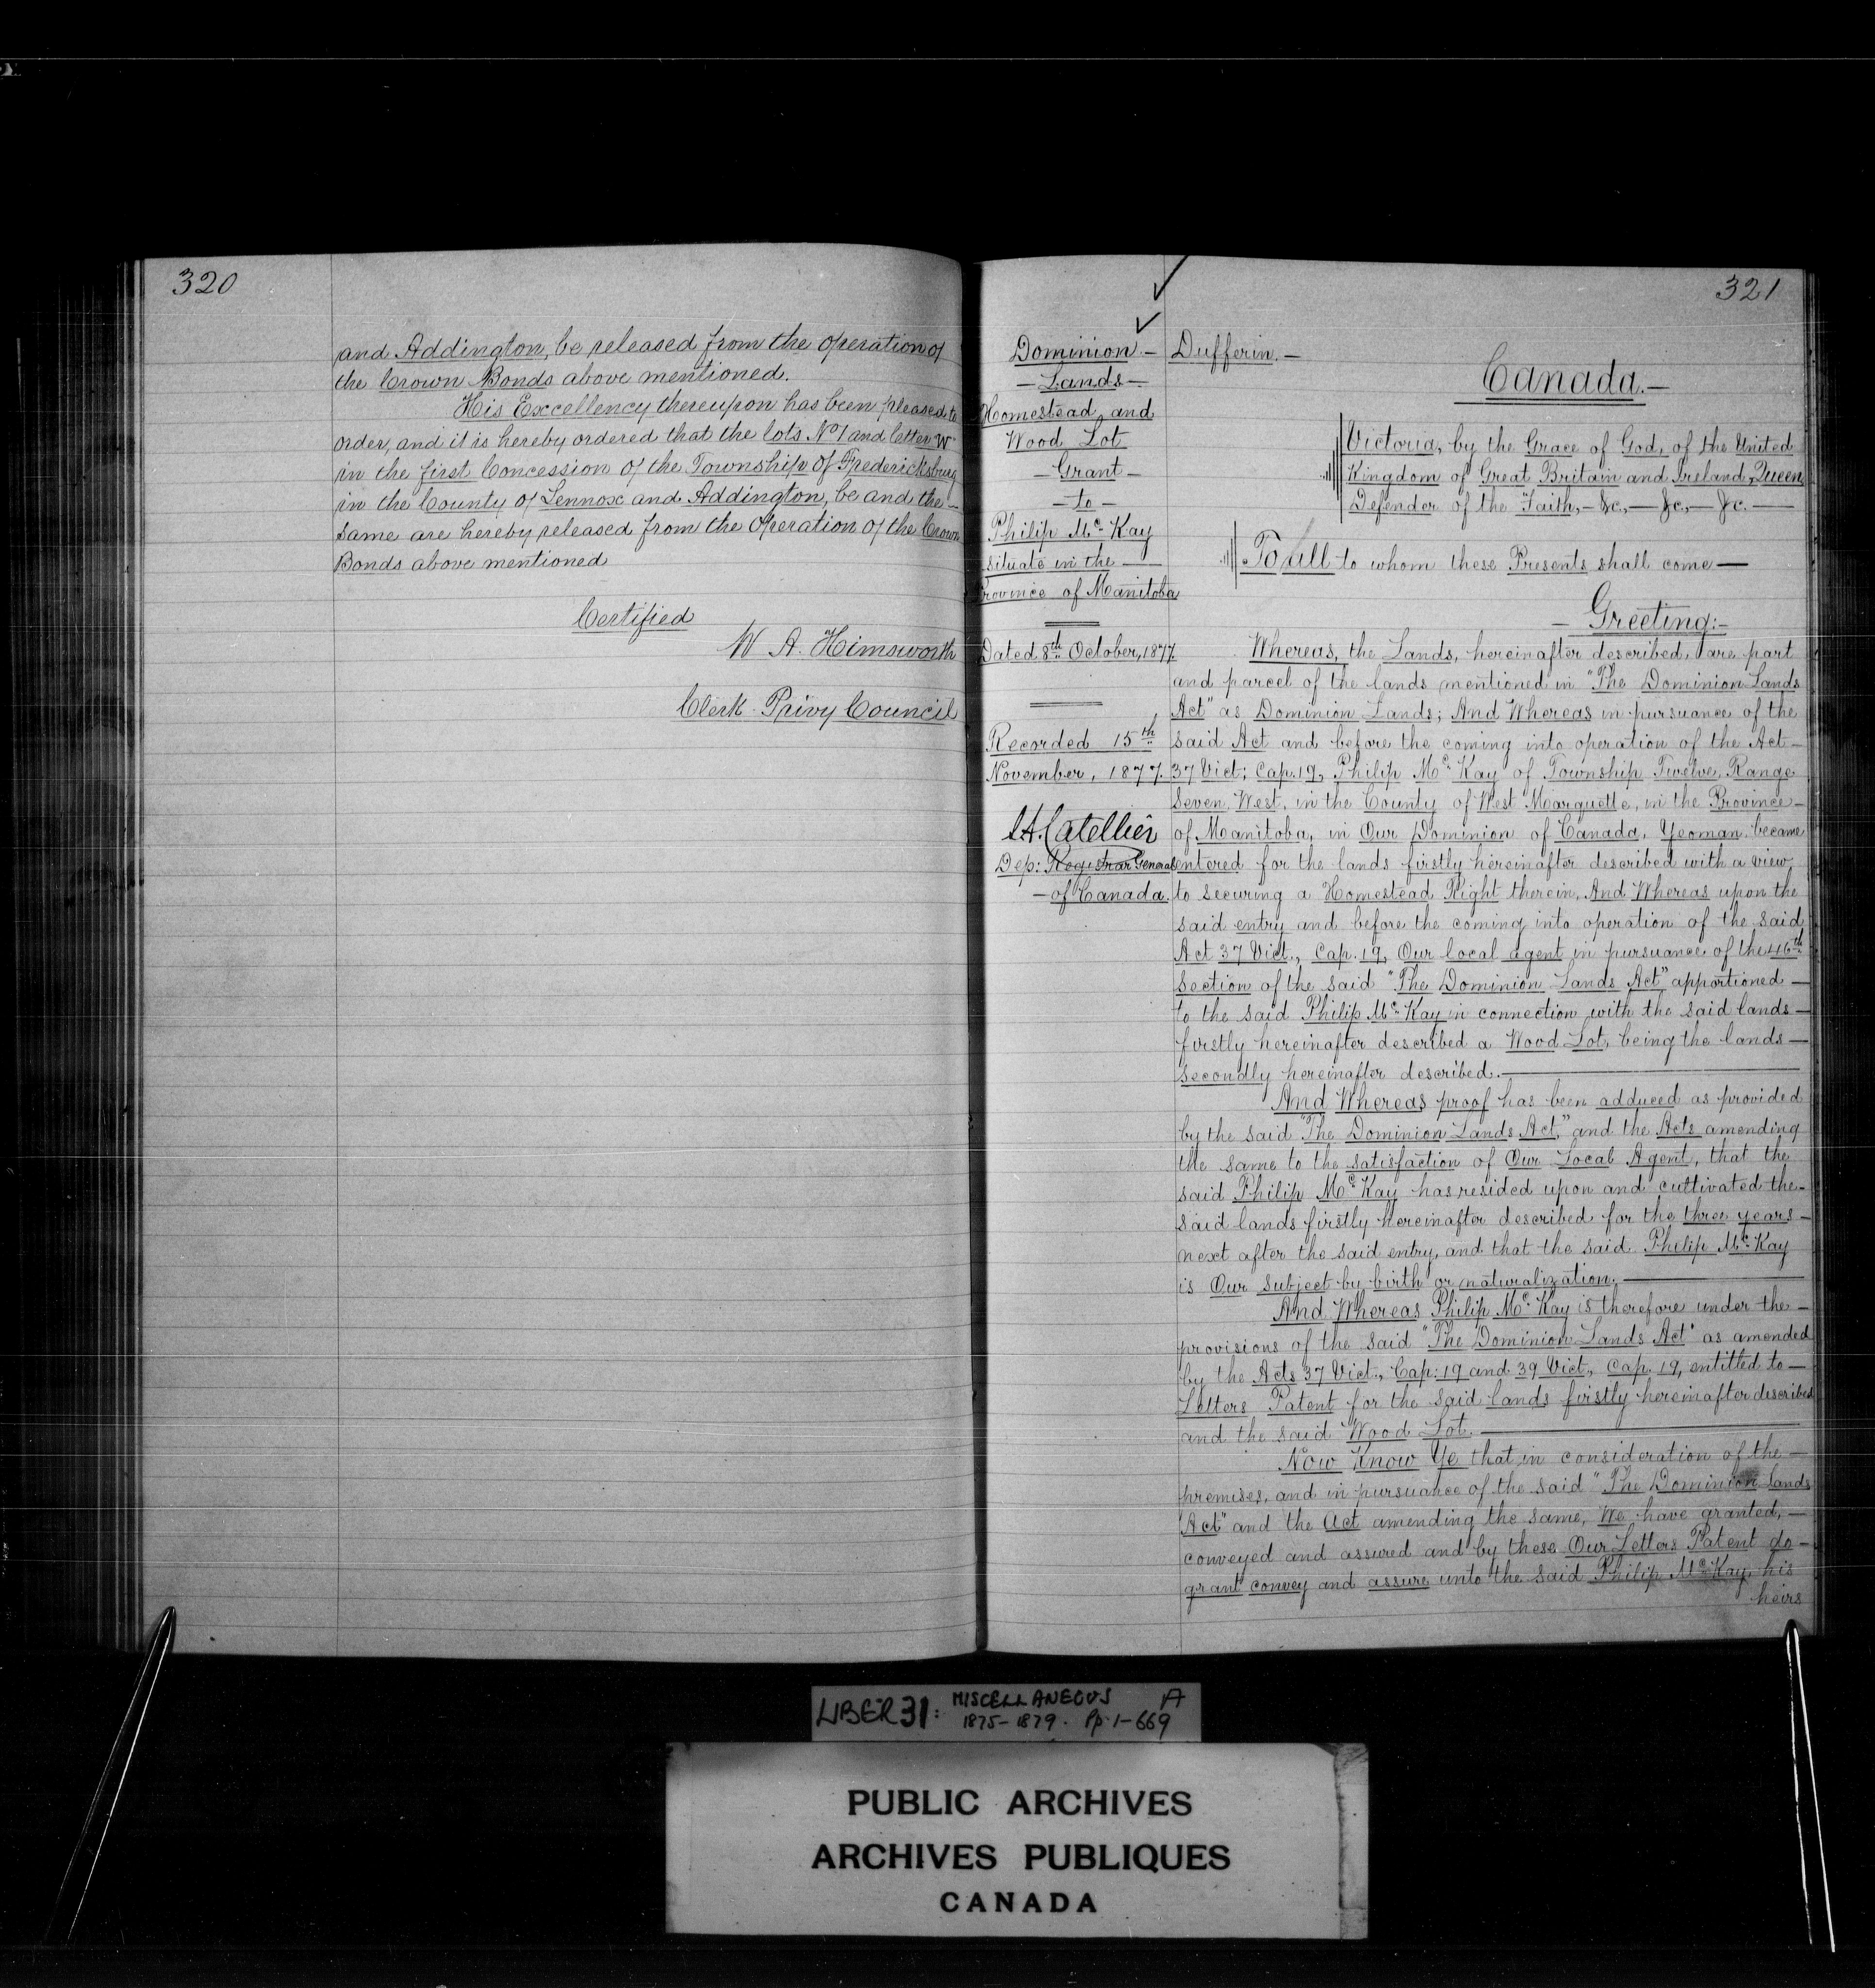 320
and Addington, be released from the operation of
the Crown Bonds above mentioned.
His Excellency thereupon has been pleased to
order, and it is hereby ordered that the lots No 1 and letter "W"
in the first Concession of the Township of Fredericksburg
in the County of Lennox and Addington, be and the —
same are hereby released from the Operation of the Crown
Bonds above mentioned
Certified
W A. Himsworth
Clerk Privy Council
321
Dominion —
— Lands —
Homestead and
Wood Lot
— Grant —
— to —
Philip Mc Kay
situate in the —
Province of Manitoba
Dated 8th October, 1877.
Recorded 15th
November, 1877.
L.A. Catellier
Dep: Registrar General
— of Canada.
Dufferin. —
Canada. —
Victoria, by the Grace of God, of the United
Kingdom of Great Britain and Ireland, Queen,
Defender of the Faith, — &c, — &c, — &c. —
To all to whom these Presents shall come —
— Greeting: —
Whereas, the Lands, hereinafter described, are part
and parcel of the lands mentioned in "The Dominion Lands
Act" as Dominion Lands; And Whereas in pursuance of the
said Act and before the coming into operation of the Act —
37 Vict; Cap. 19, Philip Mc Kay of Township Twelve, Range
Seven, West, in the County of West Marquette, in the Province —
of Manitoba, in Our Dominion of Canada, Yeoman, became
entered for the lands firstly hereinafter described with a view
to securing a Homestead Right therein, And Whereas upon the
said entry and before the coming into operation of the said
Act 37 Vict., Cap. 19, Our local agent in pursuance of the 46th
Section of the said "The Dominion Lands Act" apportioned —
to the said Philip Mc Kay in connection with the said lands —
firstly hereinafter described a Wood Lot, being the lands —
secondly hereinafter described. —
And Whereas proof has been adduced as provided
by the said "The Dominion Lands Act," and the Acts amending
the same to the satisfaction of Our Local Agent, that the
said Philip Mc Kay has resided upon and cultivated the —
said lands firstly hereinafter described for the three years —
next after the said entry, and that the said Philip Mc Kay
is Our subject by birth or naturalization. —
And Whereas Philip Mc Kay is therefore under the —
provisions of the said "The Dominion Lands Act" as amended
by the Acts 37 Vict., Cap: 19 and 39 Vict., Cap. 19, entitled to —
Letters Patent for the said lands firstly hereinafter described
and the said Wood Lot. —
Now Know Ye that in consideration of the —
premises, and in pursuance of the said "The Dominion Lands
Act" and the Act amending the same, We have granted, —
conveyed and assured and by these Our Letters Patent do —
grant convey and assure unto the said Philip Mc Kay, his
heirs
LIBER 31: MISCELLANEOUS A
1875-1879. Pp. 1-669
PUBLIC ARCHIVES
ARCHIVES PUBLIQUES
CANADA